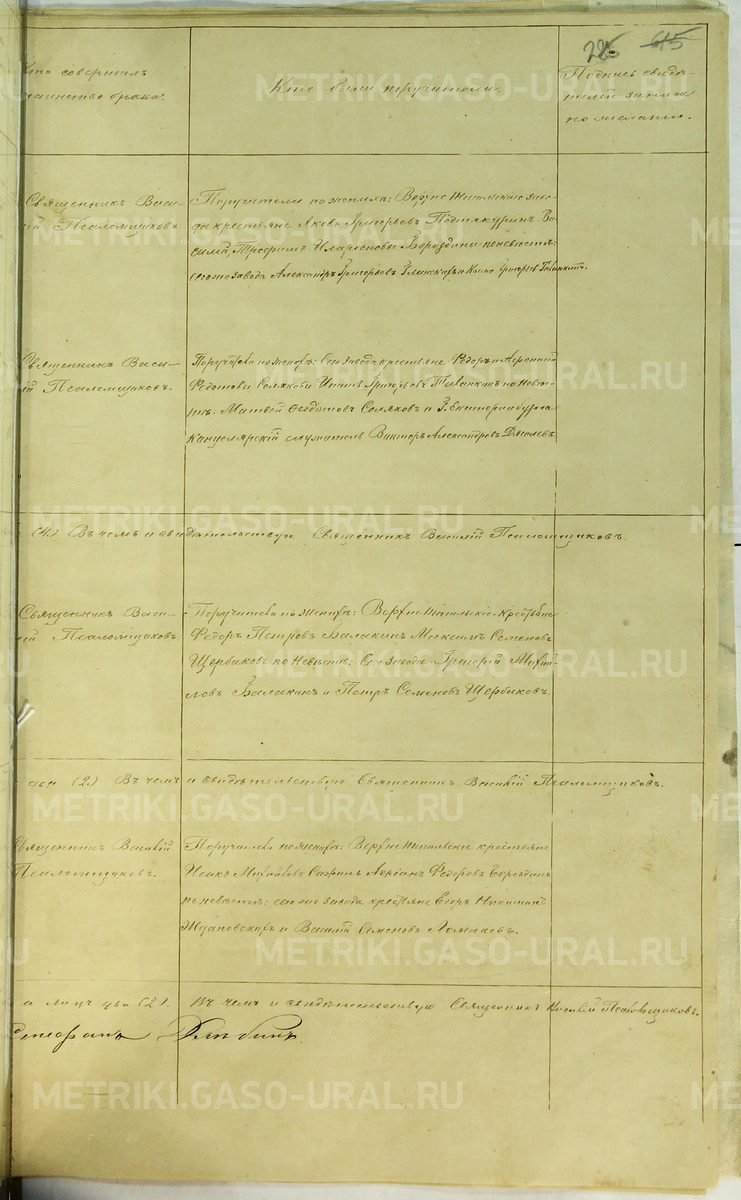 226 615
Кто совершалъ
таинство брака.
Кто были поручители.
Подпись свидѣ-
телей записи
по желанію.
Священникъ Васи-
лій Псаломщиковъ.
Поручители по женихѣ: Верхне Тагильскаго заво-
да крестьяне Яковъ Григорьевъ Ва-
силий, Трофимъ Иларіоновы Бороздины по невѣстѣ:
сегоже завода Александръ Григорьевъ Глинскихъ и Григорьев
Священникъ Васи-
лій Псаломщиковъ.
Поручители по женихѣ: Сего завода крестьяне Федоръ и
Федотовы Соляковы Иванъ Григорьевъ по невѣс-
тѣ: Матвей Феодотовъ Соляковъ и Г. Екатеринбурга
Канцелярскій служитель Викторъ Александровъ
(4.) Въ чемъ и свидѣтельствую Священникъ Василій Псаломщиковъ.
Священникъ Васи-
лій Псаломщиковъ.
Поручители по женихѣ: Верхне Тагильскіе крестьяне
Федоръ Петровъ Балакинъ Максимъ Семеновъ
Щербаковъ по невѣстѣ: Сего завода Григорій Михай-
ловъ Балакинъ и Петръ Семеновъ Щербаковъ.
два (2.) Въ чемъ и свидѣтельствую Священникъ Василій Псаломщиковъ.
Священникъ Василій
Псаломщиковъ.
Поручители по женихѣ: Верхне Тагильскіе крестьяне
Исакъ Михайловъ Федоровъ Бороздинъ
по невѣстѣ: сегоже завода крестьяне Егоръ Никитинъ
Ждановскихъ и Василій Семеновъ Ломаковъ.
а лицъ два (2). Въ чемъ и свидѣтельствую Священникъ Василій Псаломщиковъ.
METRIKI.GASO-URAL.RU